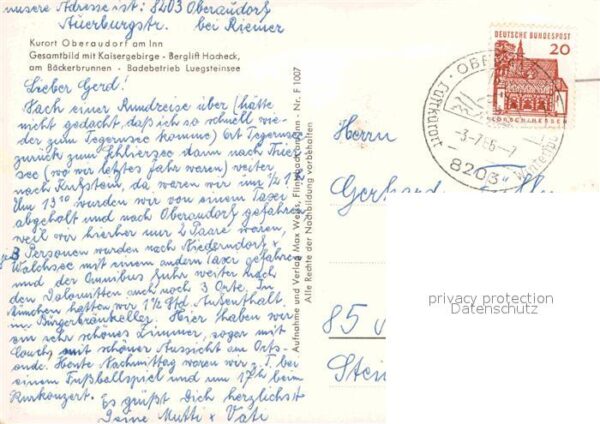 unsere Adresse ist: 8203 Oberaudorf
Auerburgstr. bei Riemer
Kurort Oberaudorf am Inn
Gesamtbild mit Kaisergebirge - Berglift Hocheck,
am Böckerbrunnen - Badebetrieb Luegsteinsee
Lieber Gerd!
Nach einer Rundreise über (hätte
nicht gedacht, daß ich so schnell wie-
der zum Tegernsee komme) Ort Tegernsee
zurück zum Schliersee dann nach Thier-
see (wo wir letztes Jahr waren) weiter
nach Kufstein, da waren wir um 1/2 1
Um 13 10 wurden wir von einem Taxi
abgeholt und nach Oberaudorf gefahren
weil wir hierher nur 2 Paare waren,
3 Personen wurden nach Niederndorf x
Walchsee mit einem anderen Taxi gefahren
und der Omnibus fuhr weiter nach
den Dolomitten auch noch 3 Orte. In
München hatten wir 1 1/2 Std. Aufenthalt
im Bürgerbräukeller. Hier haben wir
ein sehr schönes Zimmer, sogar mit
Couch, mit schöner Aussicht am Orts-
ende. Heute Nachmittag waren wir z. T. bei
einem Fußballspiel und um 17h beim
Kurkonzert. Es grüßt Dich herzlichst
Deine Mutti x Vati
Aufnahme und Verlag Max Weiss, Flintsbach am Inn - Nr. F 1007
Alle Rechte der Nachbildung vorbehalten
DEUTSCHE BUNDESPOST
20
LORSCH/HESSEN
Luftkurort
8203
Herrn
Gerhard
85
privacy protection
Datenschutz